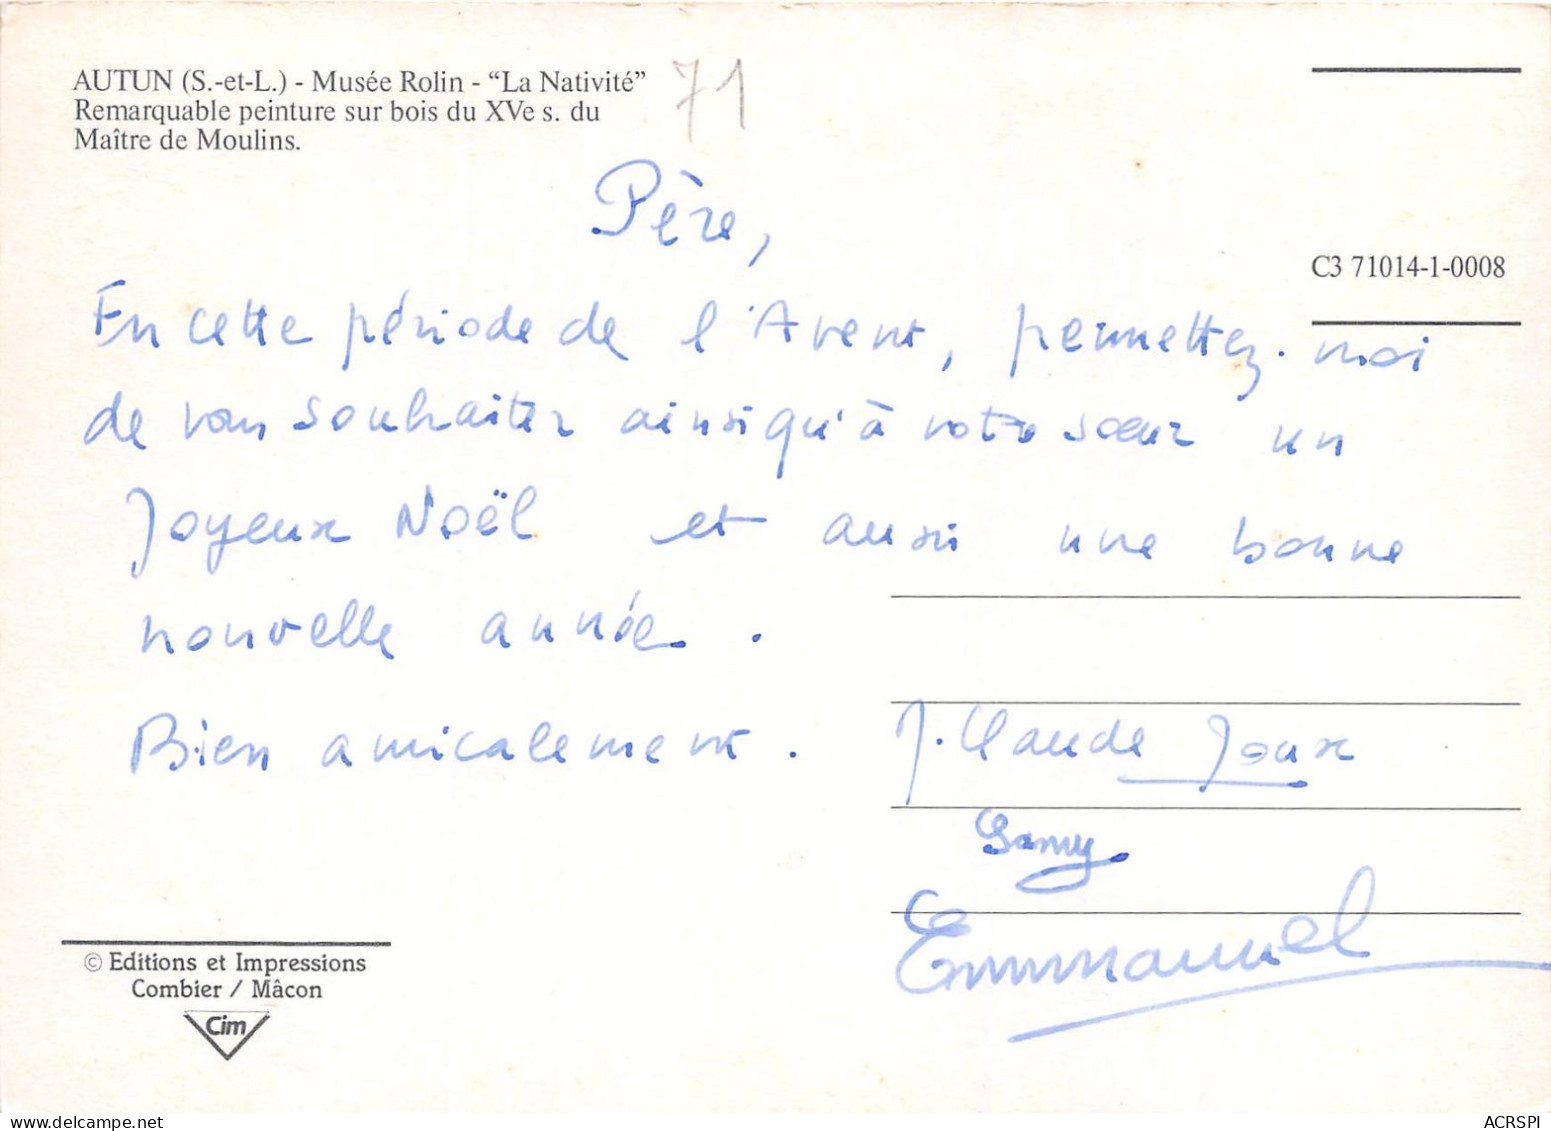 AUTUN (S.-et-L.) - Musée Rolin - “La Nativité” 71
Remarquable peinture sur bois du XVe s. du
Maître de Moulins.
Père,
C3 71014-1-0008
En cette période de l'Avent, permettez-moi
de vous souhaiter ainsi qu'à votre sœur un
Joyeux Noël et aussi une bonne
nouvelle année.
Bien amicalement. J. Claude Joux
Emmanuel
© Editions et Impressions
Combier / Mâcon
Cim
ACRSPI